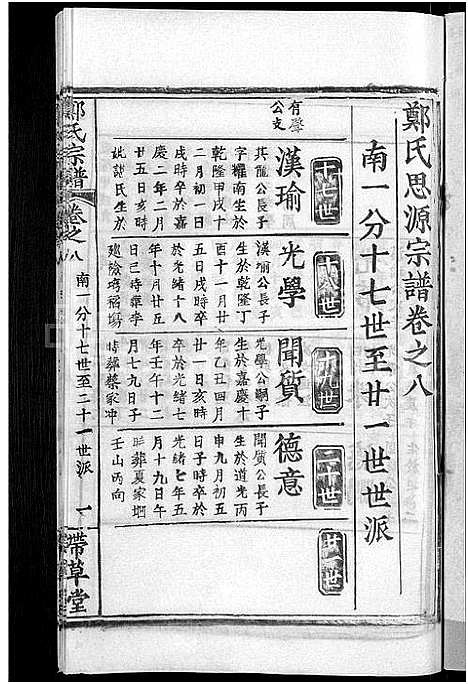 鄭氏思源宗譜卷之八
南一分十七世至廿一世世派
十七世
十八世
十九世
二十世
廿一世
有聲
公支
漢瑜
其龍公長子
字耀南生於
乾隆甲戌十
二月初一日
戌時卒於嘉
慶二年二月
廿五日亥時
妣謝氏生於
光學
漢瑜公長子
生於乾隆丁
酉十一月廿
五日戌時卒
於光緒十八
年十月廿五
日巳時葬李
聞質
光學公嗣子
生於嘉慶十
年乙丑四月
廿一日亥時
卒於光緒七
年壬午十二
月十九日子
時葬蔡家冲
德意
聞質公長子
生於道光丙
申九月初五
日子時卒於
光緒七年五
月十九日午
時葬夏家塆
壬山丙向
鄭氏宗譜
卷之八
南一分十七世至二十一世派
一
帶草堂